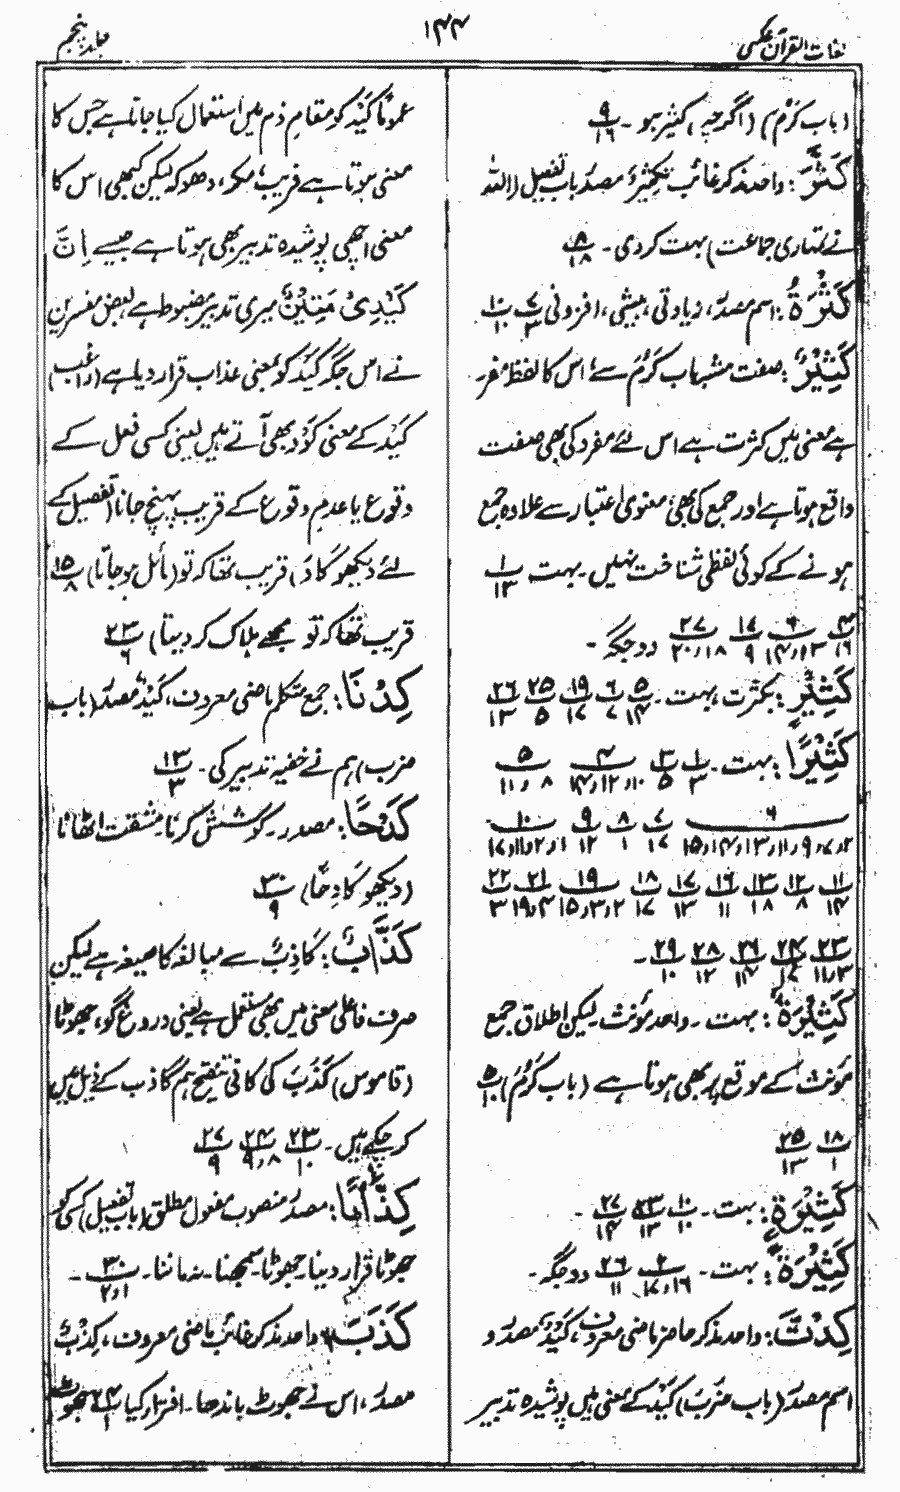 لغات القرآن عکسی
۱۴۴
جلد پنجم
(باب کَرُمَ) (اگرچہ) کثیر ہو ۔ ۹/۱۶
کَثَّرَ: واحد مذکر غائب تکثیرٌ مصدر باب تفعیل (اللہ
نے تمہاری جماعت) بہت کر دی ۔ ۸/۱۸
کَثْرَةٌ: اسم مصدر، زیادتی، بیشی، افزونی ۷/۳ ۱۰/۱۰
کَثِیْرٌ: صفت مشبہ باب کَرُمَ سے اس کا لفظ مفرد
ہے معنی میں کثرت ہے اس لئے مفرد کی بھی صفت
واقع ہوتا ہے اور جمع کی بھی، معنوی اعتبار سے علاوہ جمع
ہونے کے کوئی لفظی شناخت نہیں ۔ بہت ۱/۱۳
۴/۱۶ ۶/۱۴،۱۳ ۱۷/۹ ۲۷/۲۰،۱۸ دو جگہ ۔
کَثِیْرٍ: بکثرت، بہت ۔ ۵/۱۴ ۶/۷ ۱۹/۱۷ ۲۵/۵ ۲۶/۱۳
کَثِیْرًا: بہت ۔ ۱/۳ ۳/۵ ۴/۱۴،۱۲،۱۰ ۵/۱۱،۸
۶/۱۵،۱۴،۱۳،۱۱،۹،۷،۲ ۷/۱۷ ۸/۱ ۹/۱۲ ۱۰/۱۷،۱۱،۲،۱
۱۱/۱۴ ۱۲/۸ ۱۳/۱۸ ۱۶/۱۱ ۱۷/۱۳ ۱۸/۱۷ ۱۹/۱۵،۳،۲ ۲۱/۱۹،۴ ۲۲/۳
۲۳/۱۱،۳ ۲۴/۱۷ ۲۶/۱۴ ۲۸/۱۲ ۲۹/۱۰ ۔
کَثِیْرَةٌ: بہت ۔ واحد مؤنث ۔ لیکن اطلاق جمع
مؤنث کے موقع پر بھی ہوتا ہے (باب کَرُمَ) ۵/۱۰
۱۸/۱ ۲۵/۱۳
کَثِیْرَةٍ: بہت ۔ ۱۰/۱۰ ۲۳/۱۳ ۲۷/۱۴ ۔
کَثِیْرَةً: بہت ۔ ۲/۱۷،۱۶ ۲۶/۱۱ دو جگہ ۔
کِدْتَّ: واحد مذکر حاضر ماضی معروف، کَیْدٌ مصدر و
اسم مصدر (باب ضَرَبَ) کَیْدٌ کے معنی ہیں پوشیدہ تدبیر
عمومًا کَیْد کو مقامِ ذم میں استعمال کیا جاتا ہے جس کا
معنی ہوتا ہے فریب، مکر، دھوکہ لیکن کبھی اس کا
معنی اچھی پوشیدہ تدبیر بھی ہوتا ہے جیسے اِنَّ
کَیْدِیْ مَتِیْنٌ میری تدبیر مضبوط ہے، بعض مفسرین
نے اس جگہ کَیْد کو بمعنی عذاب قرار دیا ہے (راغب)
کَیْد کے معنی کَوْد بھی آتے ہیں یعنی کسی فعل کے
وقوع یا عدم وقوع کے قریب پہنچ جانا (تفصیل کے
لئے دیکھو کَادَ) قریب تھا کہ تو (مائل ہو جاتا) ۱۵/۸
قریب تھا کہ تو مجھے ہلاک کر دیتا) ۲۳/۶
کِدْنَا: جمع متکلم ماضی معروف، کَیْدٌ مصدر (باب
ضرب) ہم نے خفیہ تدبیر کی ۔ ۱۳/۳
کَدْحًا: مصدر ۔ کوشش کرنا ۔ مشقت اٹھانا
(دیکھو کَادِحًا) ۳۰/۹
کَذَّابٌ: کَاذِبٌ سے مبالغہ کا صیغہ ہے لیکن
صرف فاعلی معنی میں بھی مستعمل ہے یعنی دروغ گو، جھوٹا
(قاموس) کَذَبَ کی کافی تنقیح ہم کاذب کے ذیل میں
کر چکے ہیں ۔ ۲۳/۱۰ ۲۴/۹،۸ ۲۷/۹
کِذَّابًا: مصدر منصوب مفعول مطلق (باب تفعیل) کسی کو
جھوٹا قرار دینا ۔ جھوٹا سمجھنا ۔ نہ ماننا ۔ ۳۰/۲،۱ ۔
کَذَبَ: واحد مذکر غائب ماضی معروف، کِذْبٌ
مصدر، اس نے جھوٹ باندھا ۔ افترا کیا ۴/۱ جھوٹ